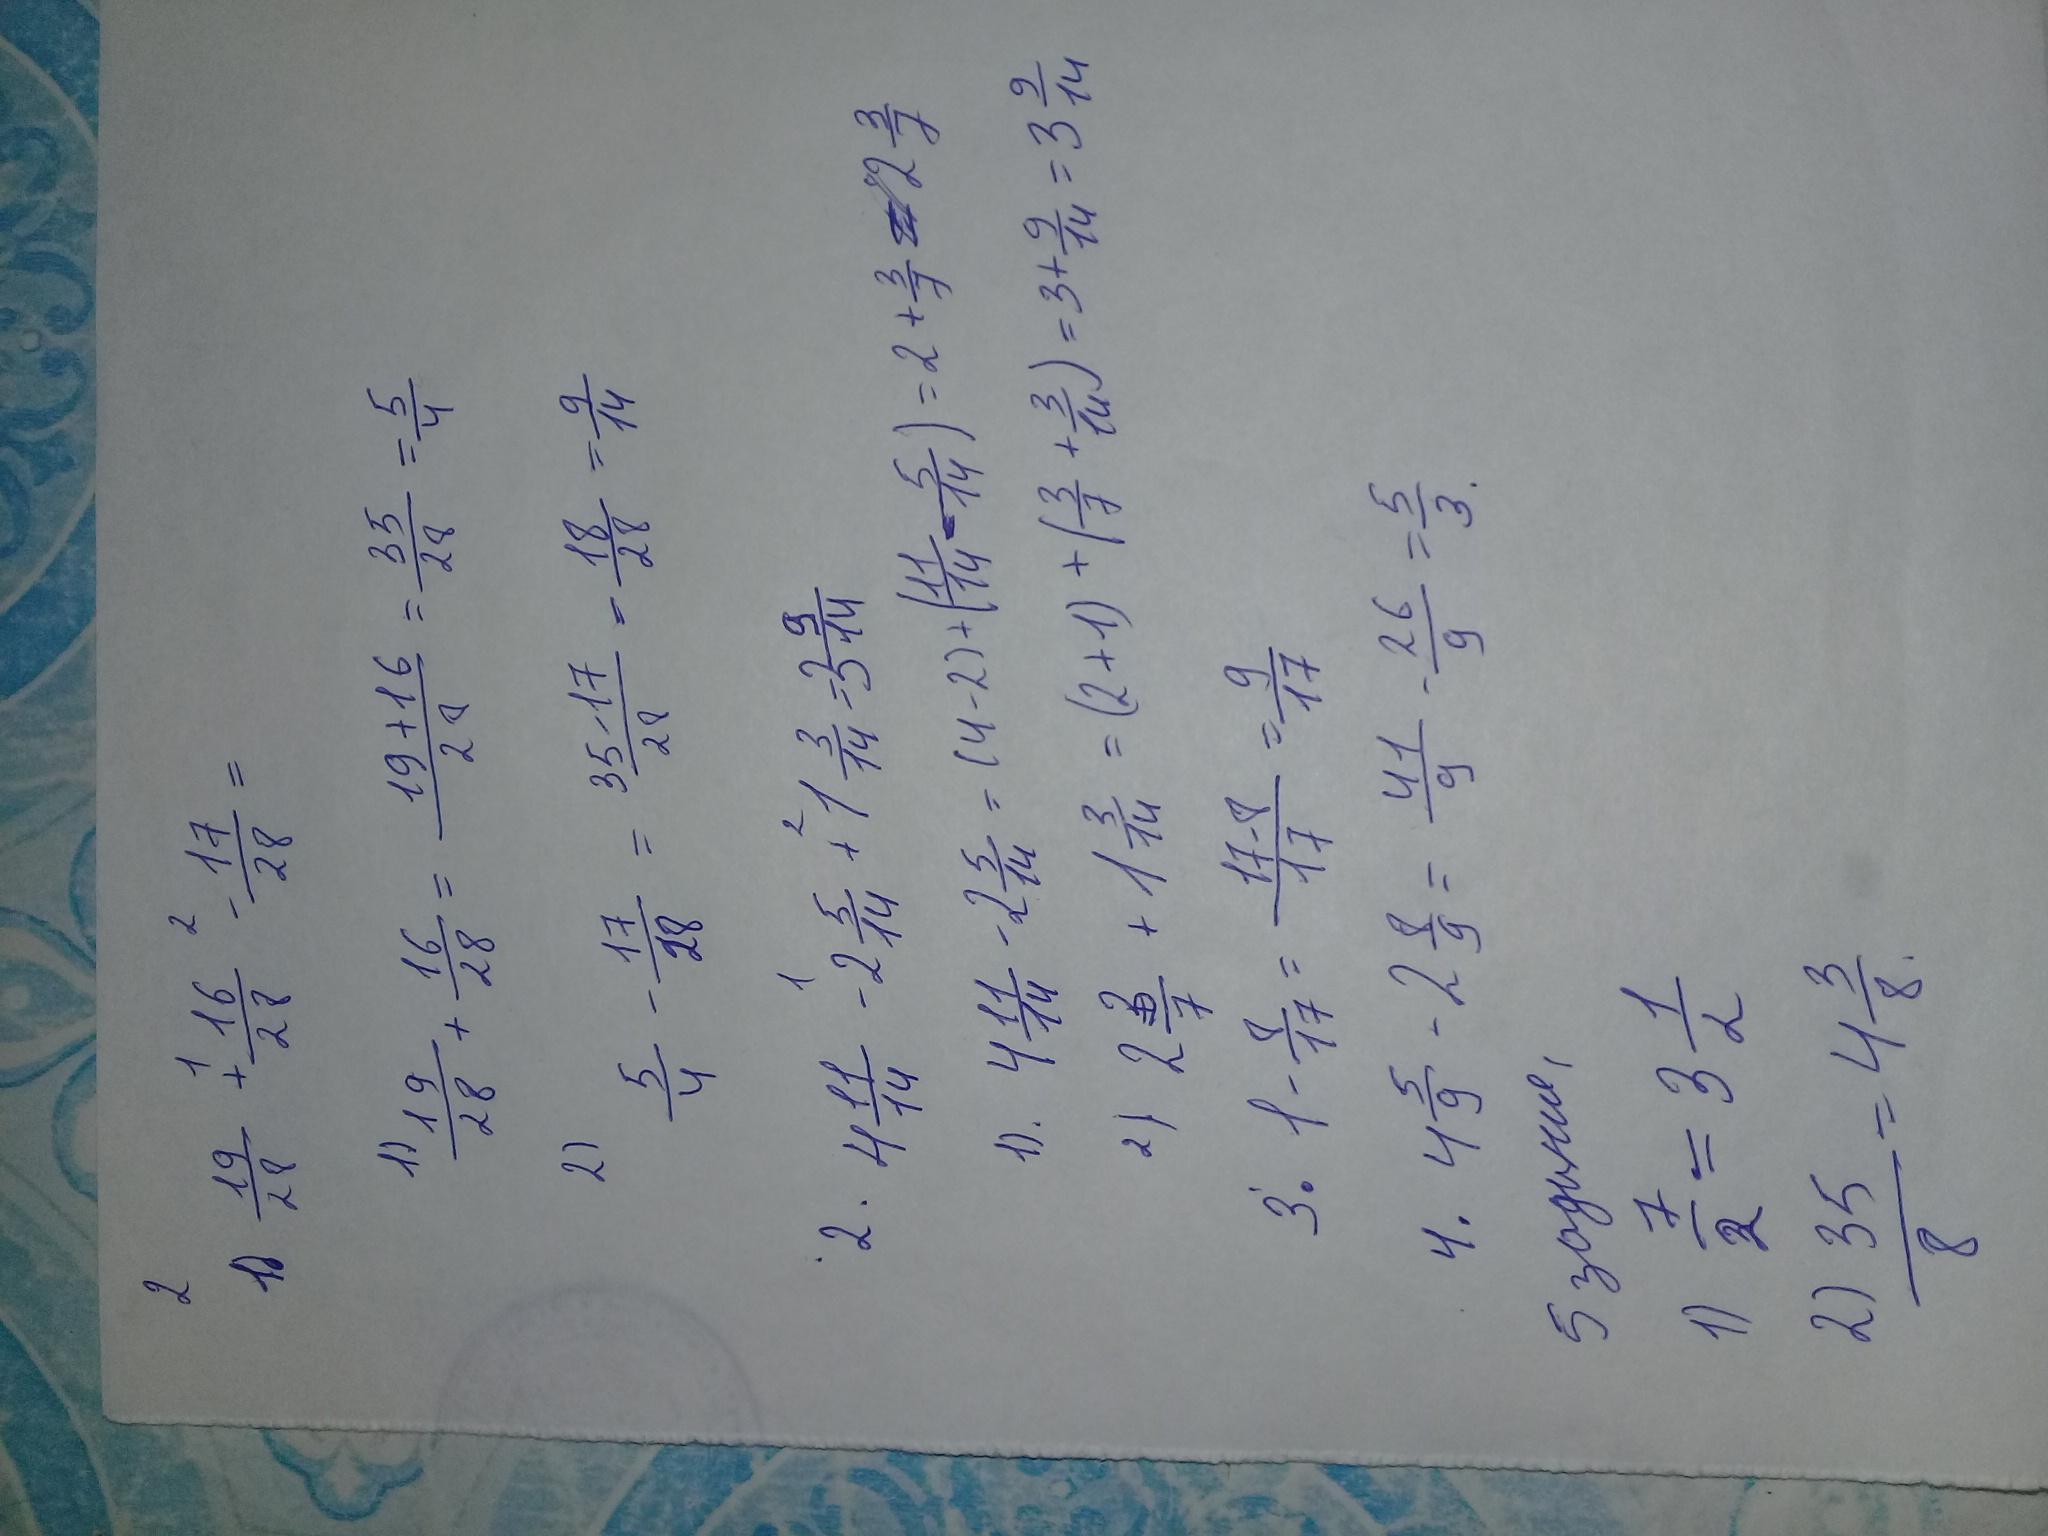 2
1) 19/28 + 16/28 - 17/28 =
1 2
1) 19/28 + 16/28 = 19+16/28 = 35/28 = 5/4
2) 5/4 - 17/28 = 35-17/28 = 18/28 = 9/14
1 2
2. 4 11/14 - 2 5/14 + 1 3/14 = 3 9/14
1). 4 11/14 - 2 5/14 = (4-2)+(11/14 - 5/14) = 2 + 3/7 = 2 3/7
2) 2 3/7 + 1 3/14 = (2+1) + (3/7 + 3/14) = 3 + 9/14 = 3 9/14
3. 1 - 8/17 = 17-8/17 = 9/17
4. 4 5/9 - 2 8/9 = 41/9 - 26/9 = 5/3.
5 задание,
1) 7/2 = 3 1/2
2) 35/8 = 4 3/8.